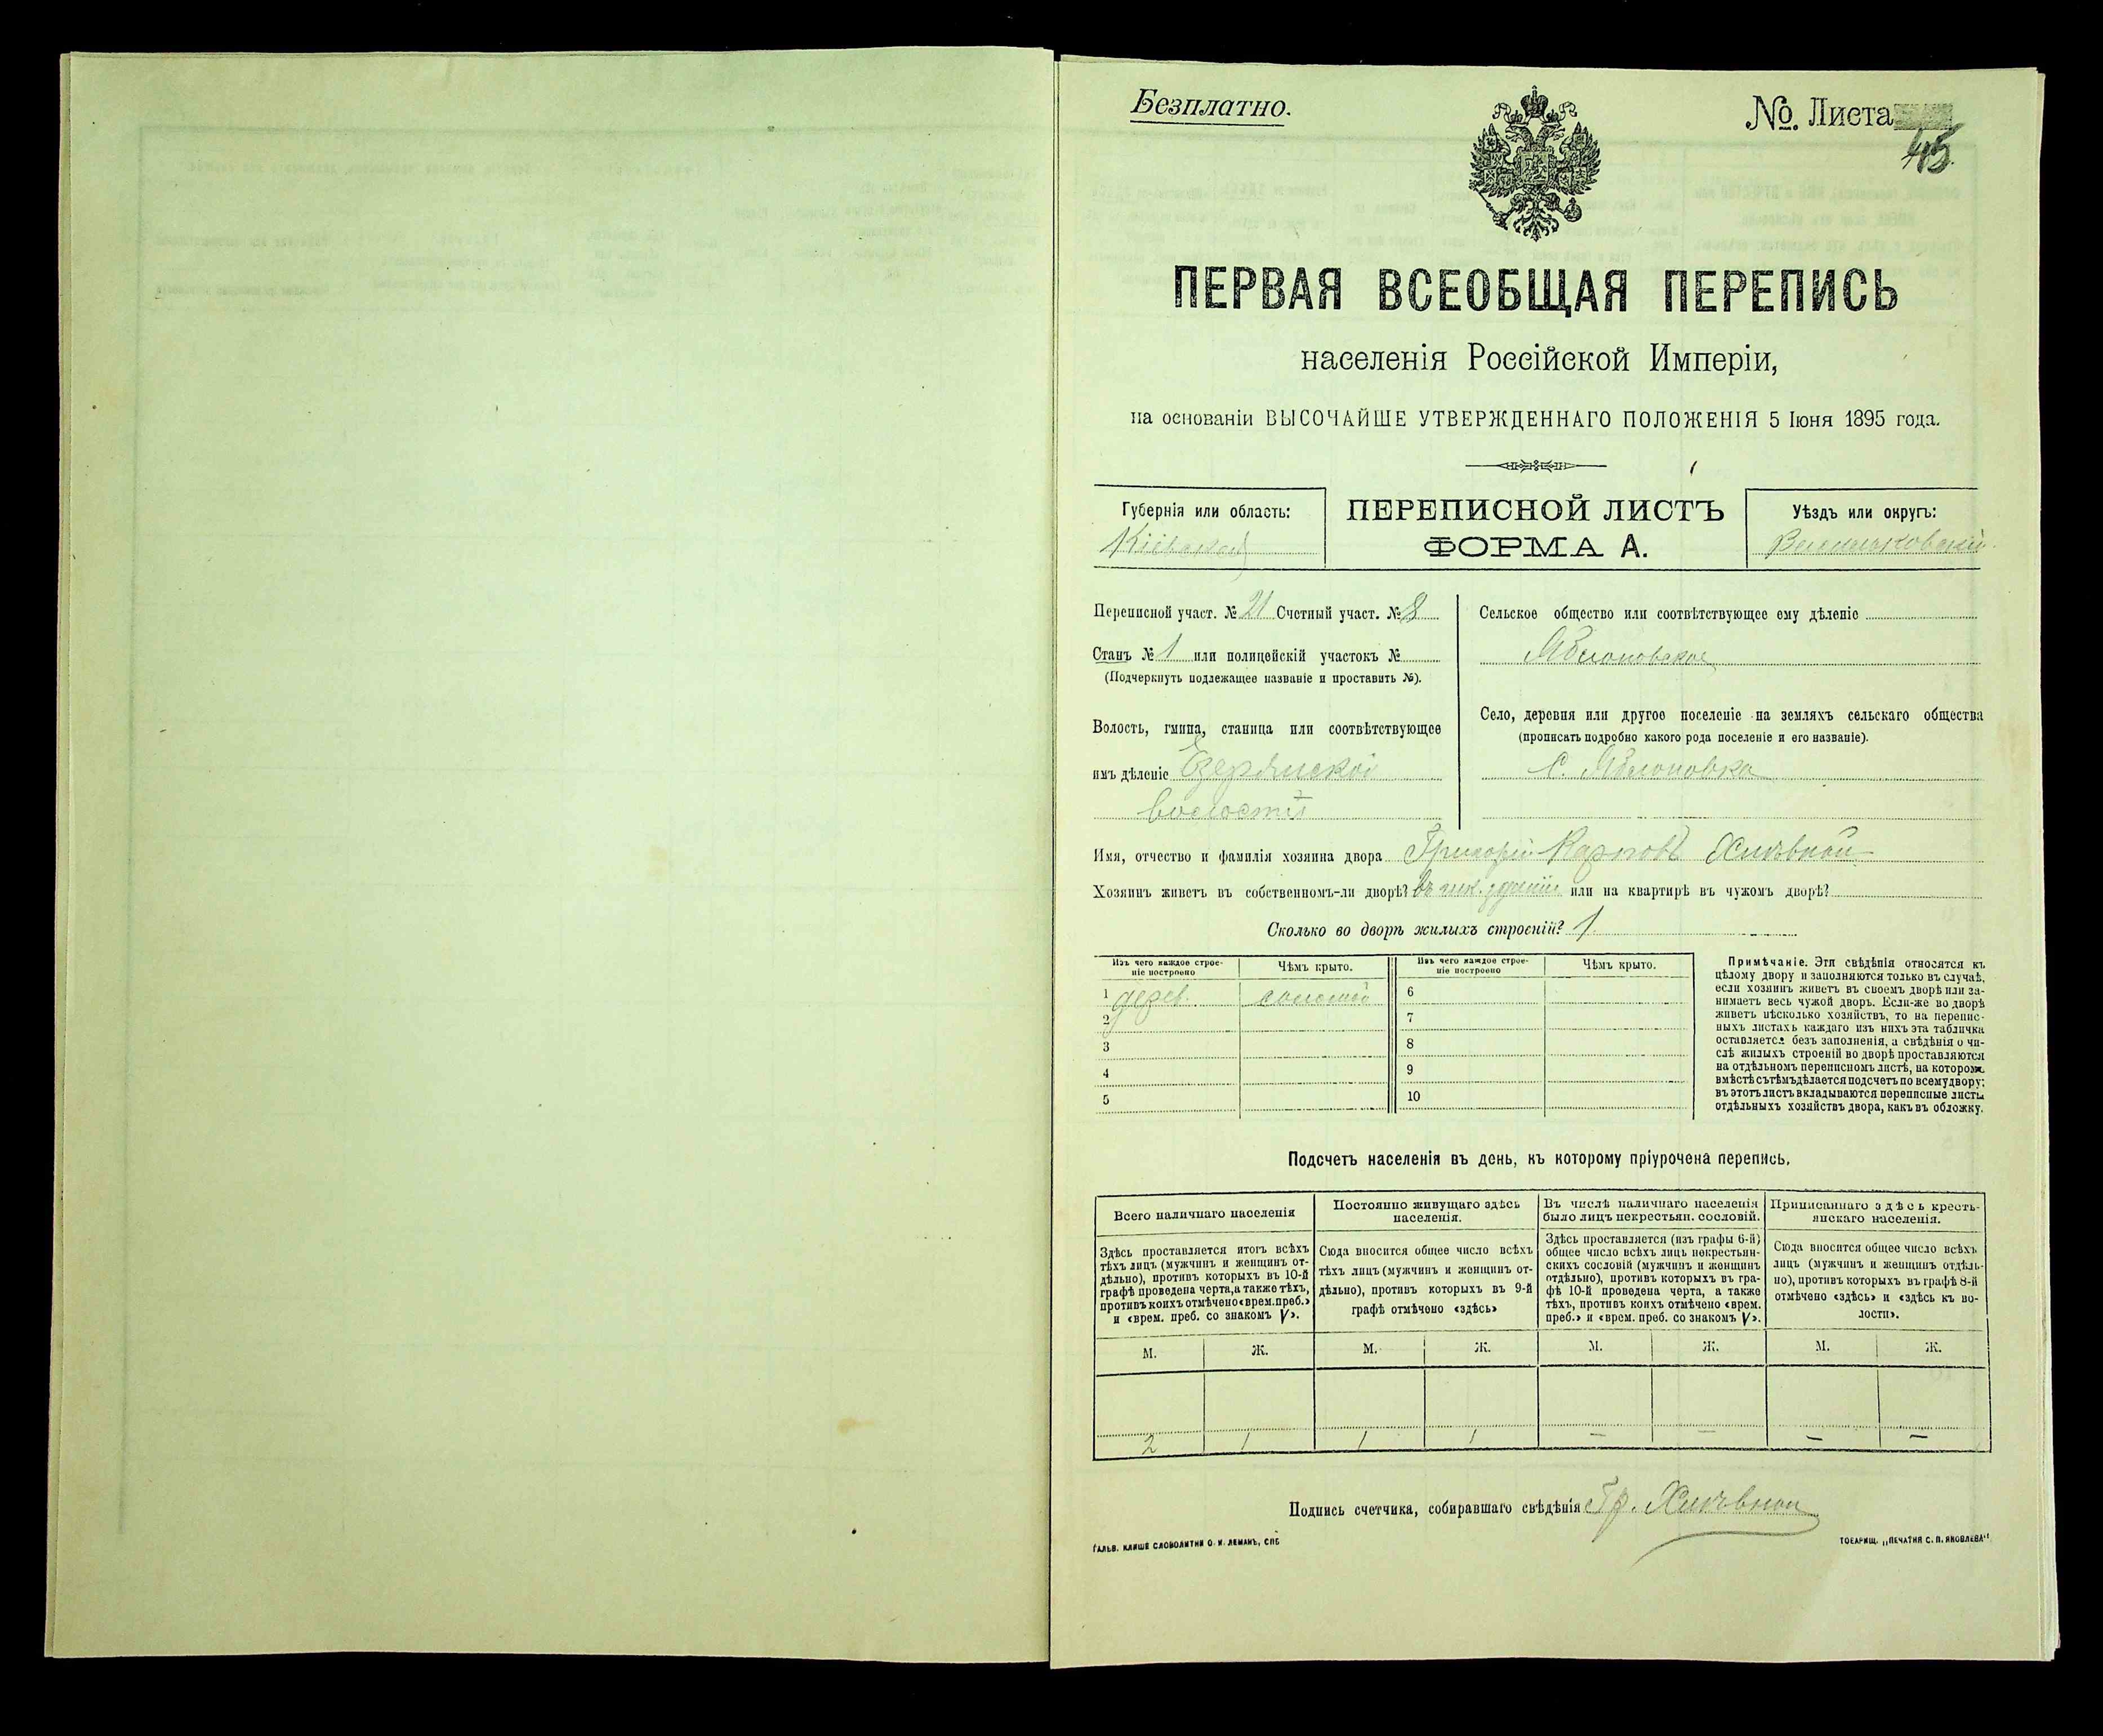 Безплатно.
№ Листа
45
ПЕРВАЯ ВСЕОБЩАЯ ПЕРЕПИСЬ
населенія Россійской Имперіи,
на основаніи ВЫСОЧАЙШЕ УТВЕРЖДЕННАГО ПОЛОЖЕНІЯ 5 Іюня 1895 года.
Губернія или область:
Кіевская
ПЕРЕПИСНОЙ ЛИСТЪ
ФОРМА А.
Уѣздъ или округъ:
Васильковскій
Переписной участ. № 21 Счетный участ. № 8
Станъ № 1 или полицейскій участокъ №
(Подчеркнуть подлежащее названіе и проставить №).
Волость, гмина, станица или соотвѣтствующее
имъ дѣленіе Езерянской
волости
Сельское общество или соотвѣтствующее ему дѣленіе
Яблоновское
Село, деревня или другое поселеніе на земляхъ сельскаго общества
(прописать подробно какого рода поселеніе и его названіе).
С. Яблоновка
Имя, отчество и фамилія хозяина двора Григорій Карповъ
Хозяинъ живетъ въ собственномъ-ли дворѣ? въ зданіи или на квартирѣ въ чужомъ дворѣ?
Сколько во дворѣ жилыхъ строеній? 1
Изъ чего каждое строе-
ніе построено
Чѣмъ крыто.
Изъ чего каждое строе-
ніе построено
Чѣмъ крыто.
1 дерев. соломой
2
3
4
5
6
7
8
9
10
Примѣчаніе. Эти свѣдѣнія относятся къ
цѣлому двору и заполняются только въ случаѣ,
если хозяинъ живетъ въ своемъ дворѣ или за-
нимаетъ весь чужой дворъ. Если-же во дворѣ
живетъ нѣсколько хозяйствъ, то на перепис-
ныхъ листахъ каждаго изъ нихъ эта табличка
оставляется безъ заполненія, а свѣдѣнія о чи-
слѣ жилыхъ строеній во дворѣ проставляются
на отдѣльномъ переписномъ листѣ, на которомъ
вмѣстѣ съ тѣмъ дѣлается подсчетъ по всему двору;
въ этотъ листъ вкладываются переписные листы
отдѣльныхъ хозяйствъ двора, какъ въ обложку.
Подсчетъ населенія въ день, къ которому пріурочена перепись.
Всего наличнаго населенія
Здѣсь проставляется итогъ всѣхъ
тѣхъ лицъ (мужчинъ и женщинъ от-
дѣльно), противъ которыхъ въ 10-й
графѣ проведена черта, а также тѣхъ,
противъ коихъ отмѣчено «врем. преб.»
и «врем. преб. со знакомъ V».
Постоянно живущаго здѣсь
населенія.
Сюда вносится общее число всѣхъ
тѣхъ лицъ (мужчинъ и женщинъ от-
дѣльно), противъ которыхъ въ 9-й
графѣ отмѣчено «здѣсь»
Въ числѣ наличнаго населенія
было лицъ некрестьян. сословій.
Здѣсь проставляется (изъ графы 6-й)
общее число всѣхъ лицъ некрестьян-
скихъ сословій (мужчинъ и женщинъ
отдѣльно), противъ которыхъ въ гра-
фѣ 10-й проведена черта, а также
тѣхъ, противъ коихъ отмѣчено «врем.
преб.» и «врем. преб. со знакомъ V».
Приписаннаго здѣсь кресть-
янскаго населенія.
Сюда вносится общее число всѣхъ
лицъ (мужчинъ и женщинъ отдѣль-
но), противъ которыхъ въ графѣ 8-й
отмѣчено «здѣсь» и «здѣсь къ во-
лости».
М. Ж. М. Ж. М. Ж. М. Ж.
2 1 1 1 – – – –
Подпись счетчика, собиравшаго свѣдѣнія Гр.
ГАЛЬВ. КЛИШЕ СЛОВОЛИТНИ О. И. ЛЕМАНЪ, СПБ
ТОВАРИЩ. „ПЕЧАТНЯ С. П. ЯКОВЛЕВА“